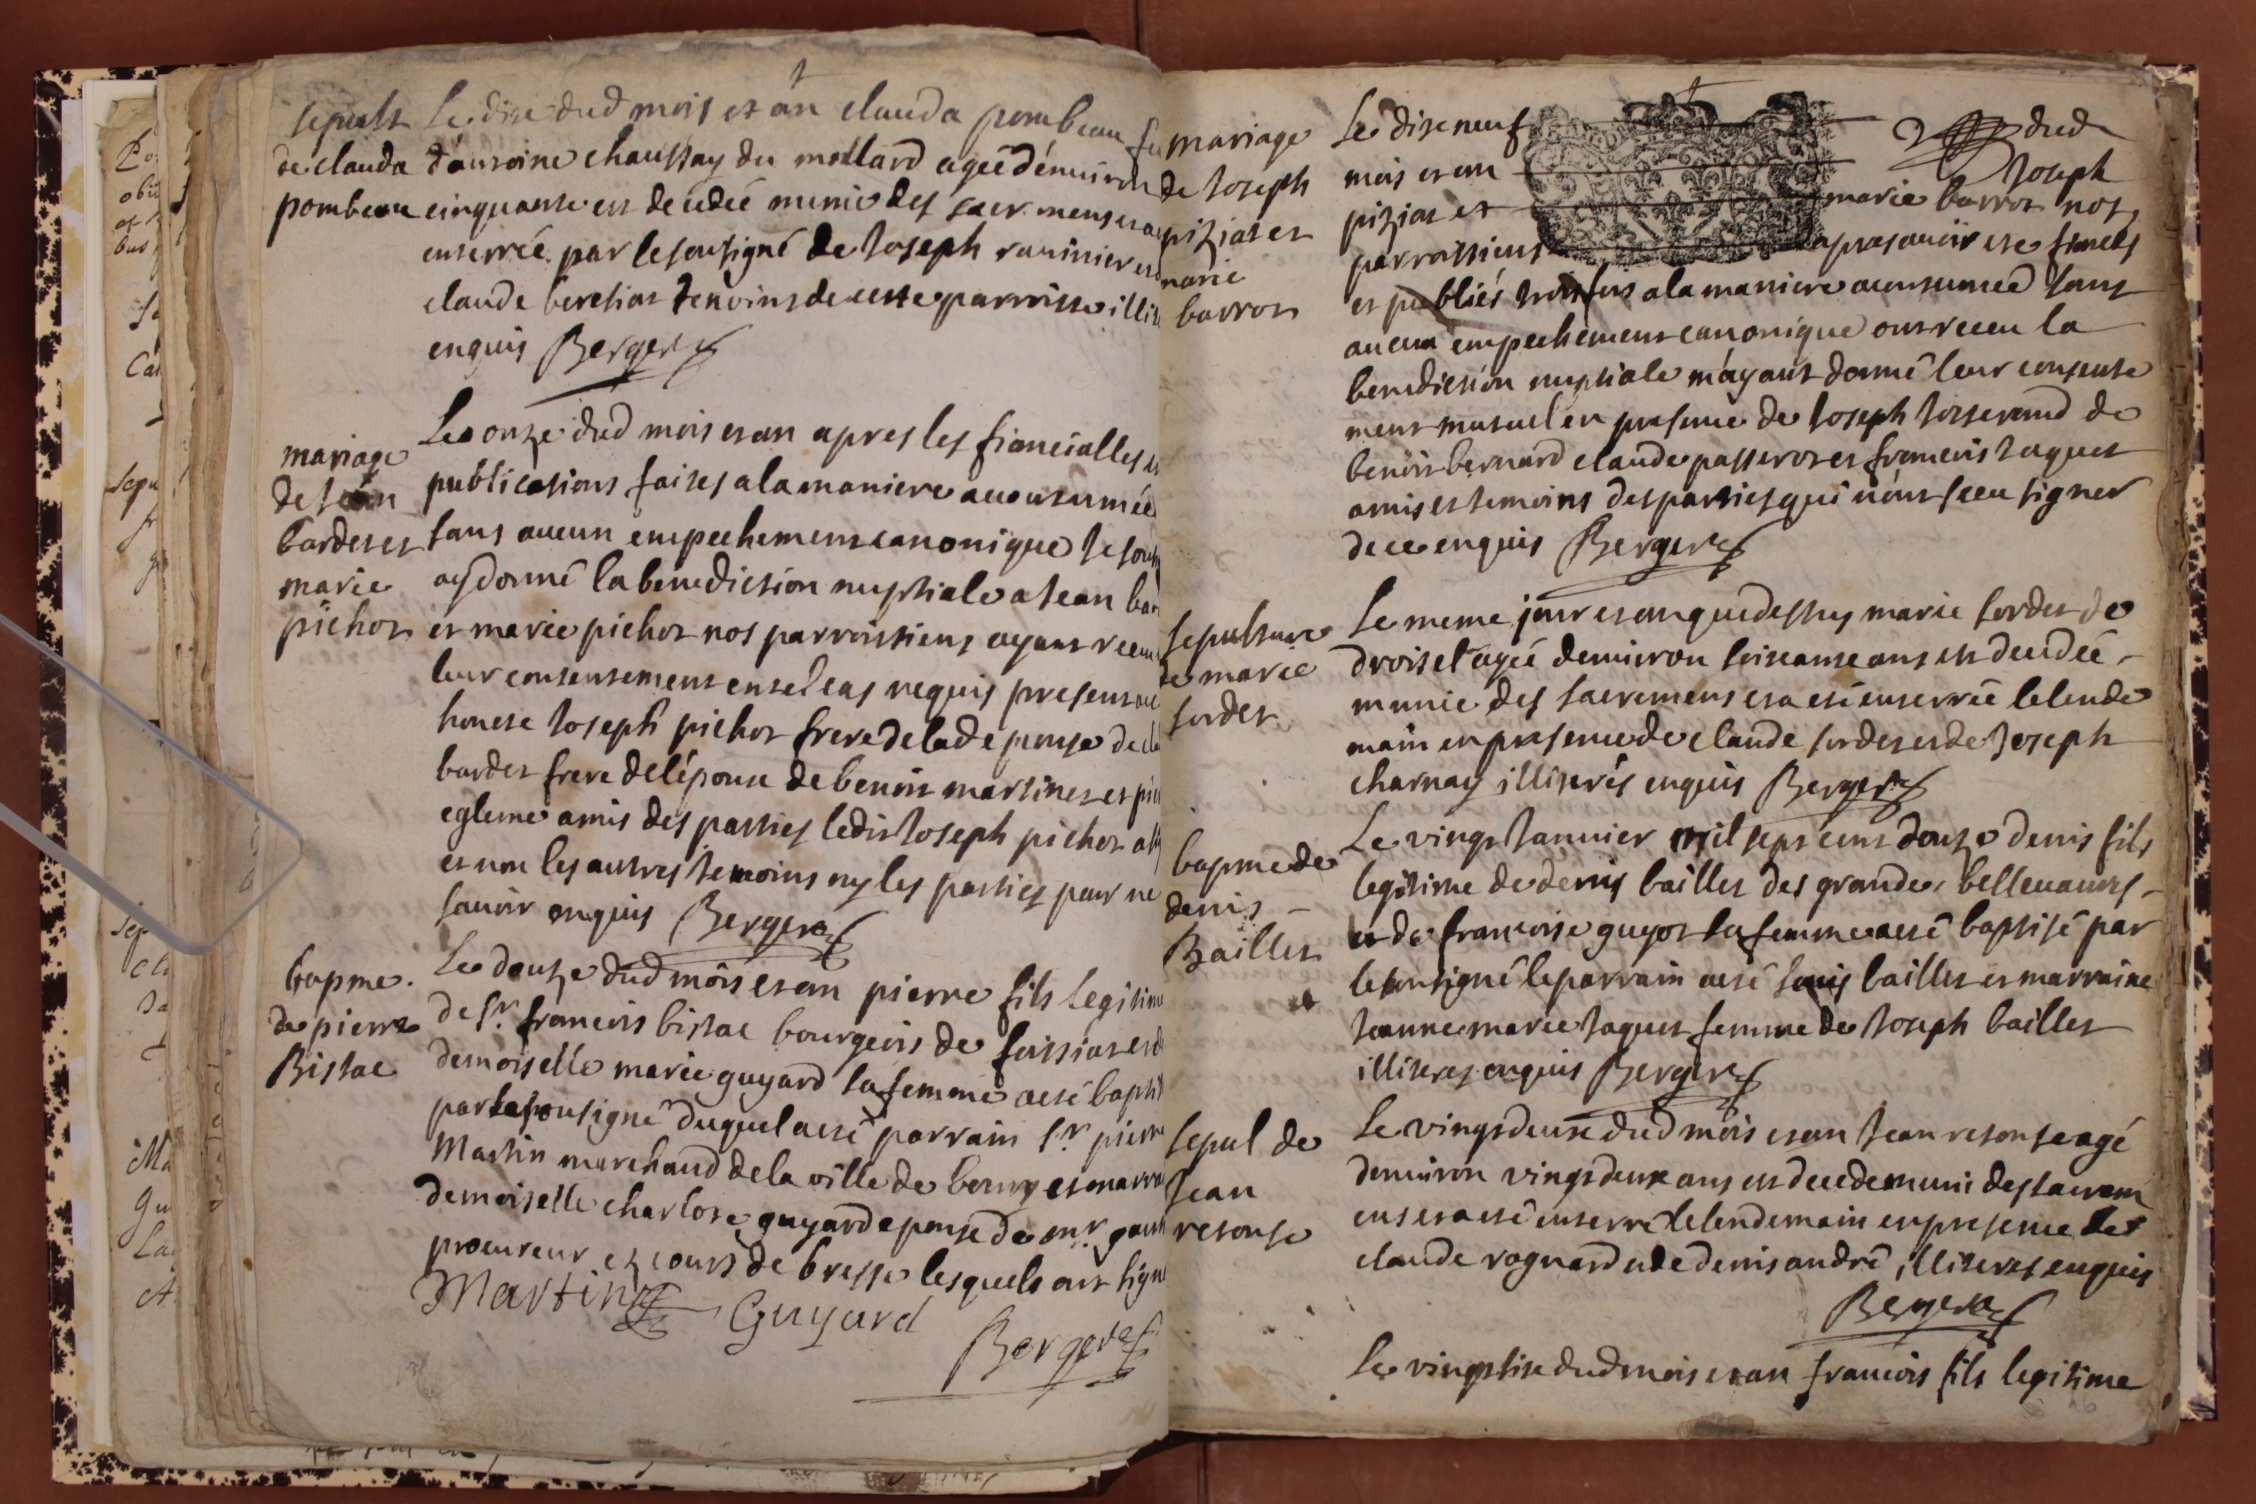 sepult
de clauda
pombeau
Le dix dud mois et an clauda pombeau
d'antoine chaussay du mollard agée d'environ
cinquante est decedée munie des sacr mens et a
enterrée par le sousigné de Joseph raviniev et
claude beresiat temoins de cette parroisse illit
enquis Berger
mariage
de jean
bardet et
marie
pichot
Le onze dud mois et an apres les fiancialles et
publications faites a la maniere acoutumée
sans aucun empechement canonique Je sous
ay donné la benediction nuptiale a Jean bar
et marie pichot nos parroissiens ayant receu
leur consentement en tel cas requis presens
honete Joseph pichot frere de lad epouse de cla
bardet frere de l'epoux de benoit martinet et pie
egleme amis des parties ledit Joseph pichot a
et non les autres temoins ny les parties pour ne
savoir enquis Berger
bapme
de pierre
Bistac
Le douze dud mois et an pierre fils legitime
de sr francois bistac bourgeois de foissiat et d
demoiselle marie guyard sa femme a eté bapti
par le sousigné duquel a eté parrain sr pierre
Martin marchand de la ville de bourg et marra
demoiselle charlote guyard epouse de mr
procureur es cours de bresse lesquels ont signe
Martin Guyard
Berger
mariage
de Joseph
piziat et
marie
barrot
Le dix neuf dud
mois et an Joseph
piziat et marie barrot nos
parroissiens apres avoir ete fiancés
et publiés trois fois a la maniere acoutumée sans
aucun empechement canonique ont receu la
benediction nuptiale m'ayant donné leur consente
ment mutuel en presence de Joseph Josserand de
benoit bernard claude passerot et francois Jaquet
amis et temoins des parties qui n'ont sceu signer
de ce enquis Berger
sepulture
de marie
sordet
Le meme jour et an que dessus marie sordet de
droiset agée d'environ soixante ans est decedée
munie des sacremens et a eté enterrée le lende
main en presence de claude sordet et de Joseph
charnay illiterés enquis Berger
bapme de
denis
Baillet
Le vingt Janvier mil sept cent douze denis fils
legitime de denis baillet des grandes bellevavres
et de francoise guyot sa femme a eté baptisé par
le sousigné le parrain a eté Louis baillet et marraine
Jeanne marie Jaquet femme de Joseph baillet
illiteres enquis Berger
sepul de
Jean
retouse
Le vingt deux dud mois et an Jean retouse agé
d'environ vingt deux ans est decedé muni des sacrem
ens et a eté enterré le lendemain en presence de
claude rognard et de denis andré illiteres enquis
Berger
Le vingt six dud mois et an francois fils legitime